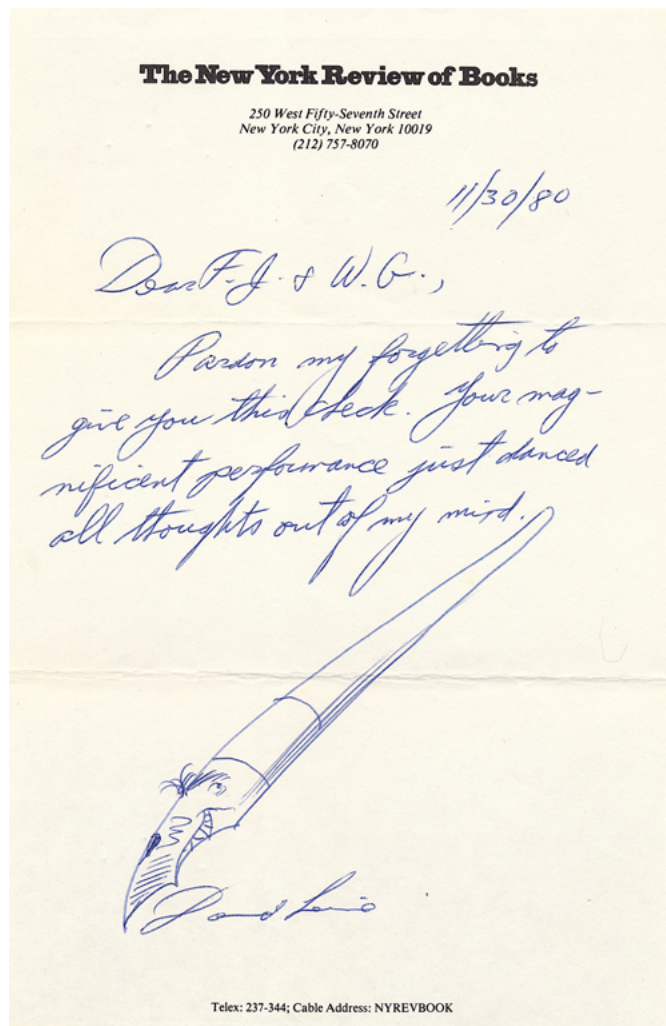 The New York Review of Books
250 West Fifty-Seventh Street
New York City, New York 10019
(212) 757-8070
11/30/80
Dear F.J. & W.G.,
Pardon my forgetting to
give you this check. Your mag-
nificent performance just danced
all thoughts out of my mind.
David Levine
Telex: 237-344; Cable Address: NYREVBOOK